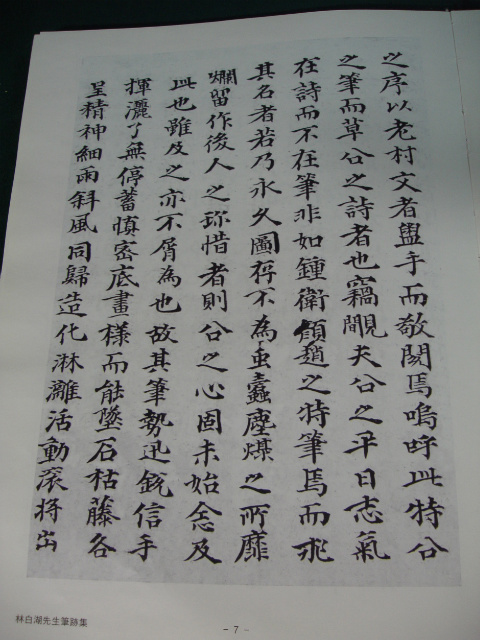 之序以老村文者盥手而敬閱焉嗚呼此特公
之筆而草公之詩者也竊覸夫公之平日志氣
在詩而不在筆非如鍾衛顔趙之特筆焉而求
其名者若乃永久圖存不為虫蠹塵煤之所靡
爛留作後人之珎惜者則公之心固未始念及
此也雖及之亦不屑為也故其筆勢迅銳信手
揮灑了無停蓄慎密底畫樣而能墜石枯藤各
呈精神細雨斜風同歸造化淋灕活動滚将出
林白湖先生筆跡集
- 7 -